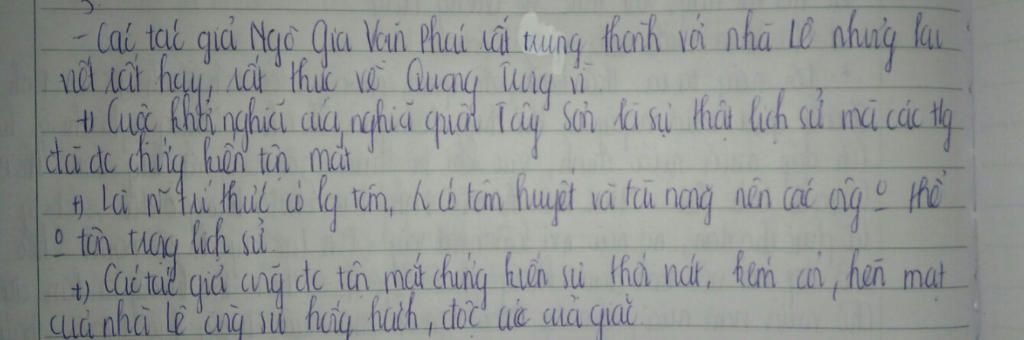 - Các tác giả Ngô Gia Văn Phái rất trung thành với nhà Lê nhưng lại
viết rất hay, rất thực về Quang Trung vì
+) Cuộc khởi nghĩa của nghĩa quân Tây Sơn là sự thật lịch sử mà các
đã đc chứng kiến tận mắt
+) Là trí thức có lg tâm, có tâm huyết và tài năng nên các ông thể
tôn trọng lịch sử
+) Các tác giả cũng đc tận mắt chứng kiến sự thối nát, kém cỏi, hèn mạt
của nhà Lê cùng sự hống hách, độc ác của giặc